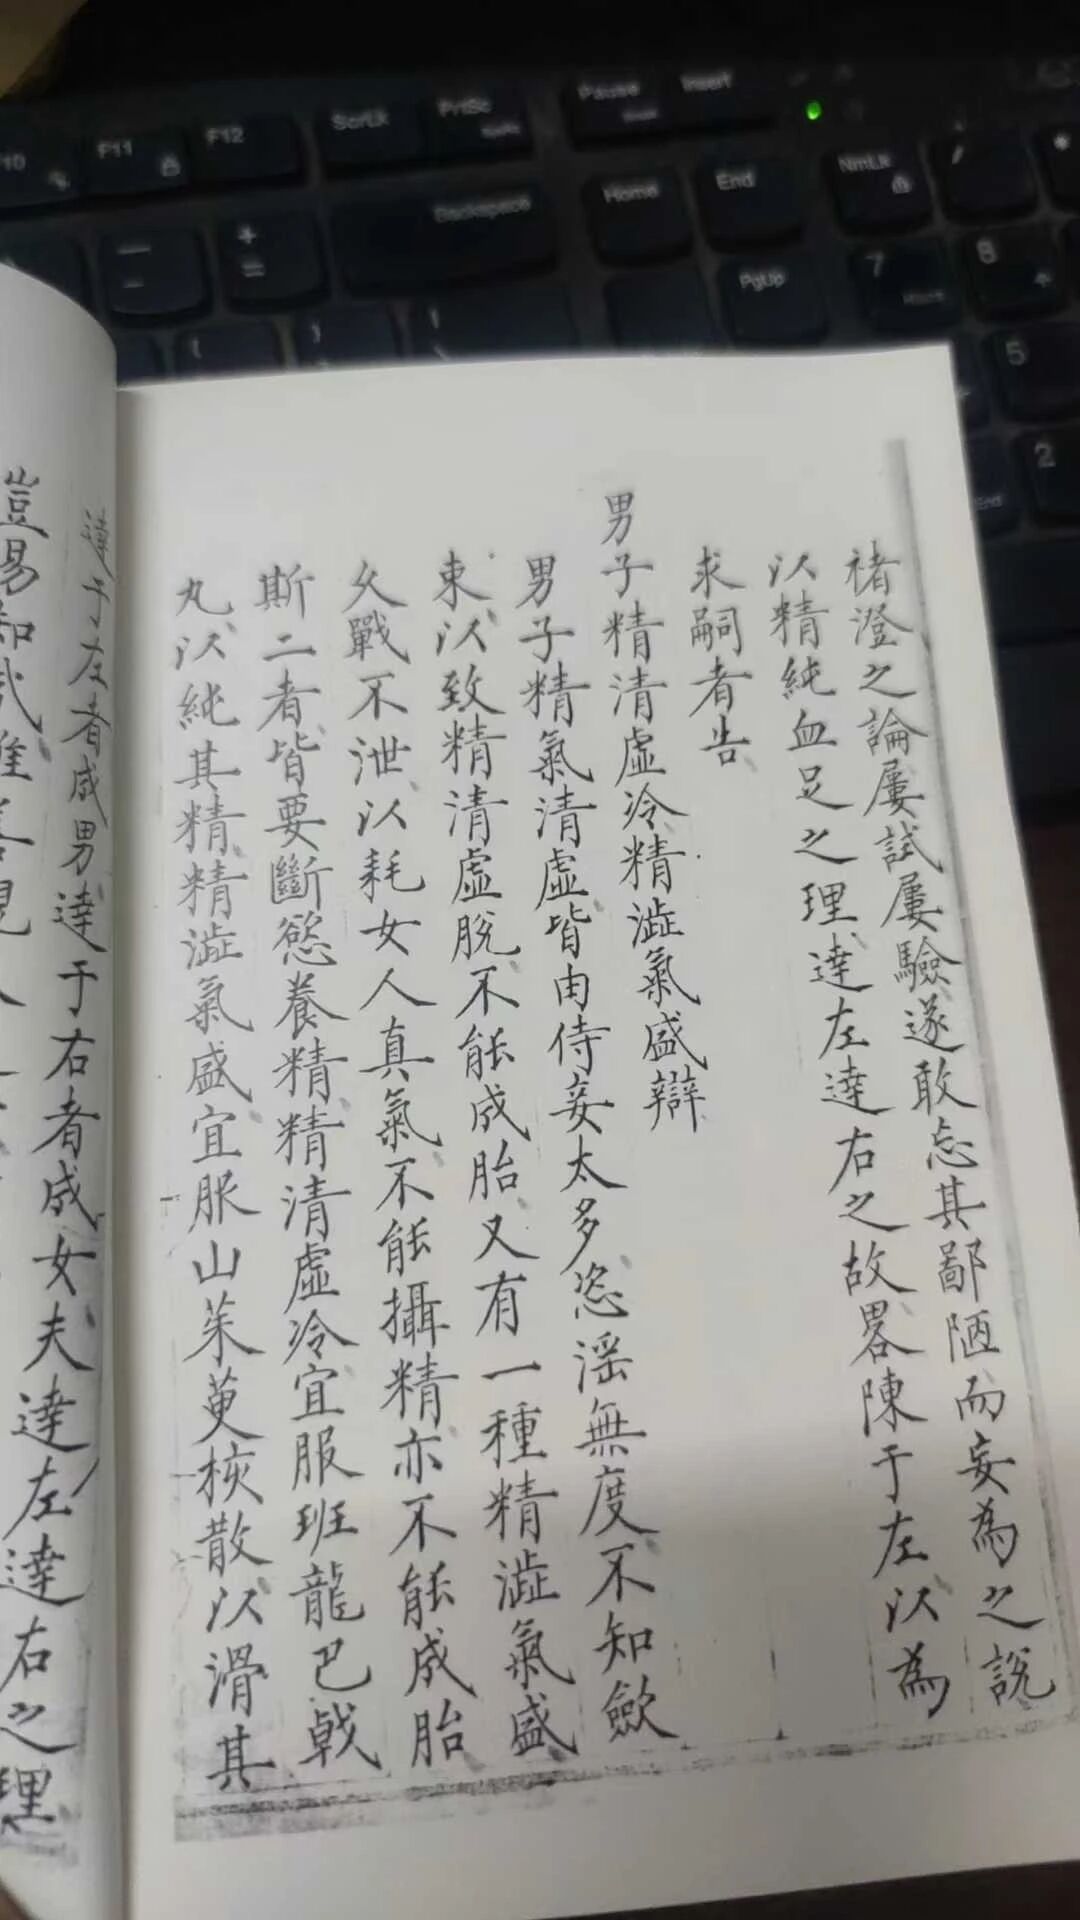 褚澄之論屢試屢驗遂敢忘其鄙陋而妄為之說
以精純血足之理達左達右之故畧陳于左以為
求嗣者告
男子精清虛冷精澁氣盛辯
男子精氣清虛皆由侍妾太多恣淫無度不知歛
束以致精清虛脫不能成胎又有一種精澁氣盛
久戰不泄以耗女人真氣不能攝精亦不能成胎
斯二者皆要斷慾養精精清虛冷宜服班龍巴戟
丸以純其精精澁氣盛宜服山茱萸核散以滑其
達于左者成男達于右者成女夫達左達右之理
F10
F11
F12
ScrLk
PrtSc
Pause
Insert
Backspace
Home
End
NmLk
/
*
+
=
PgUp
7
Home
8
5
2
End